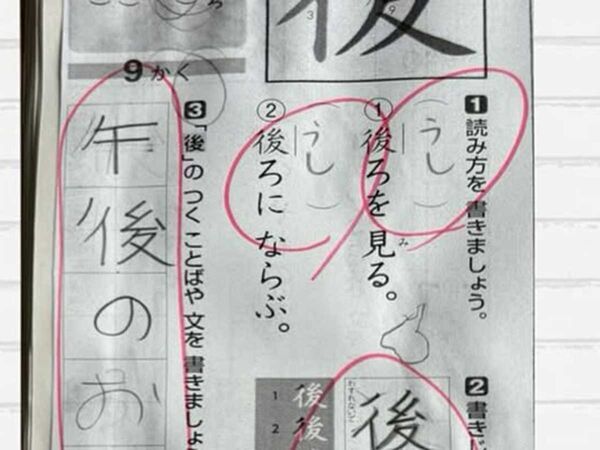 後
1 読み方を 書きましょう。
① 後ろを 見る。
うし
み
② 後ろに ならぶ。
うし
2 書きじ
わすれないで
後
1 後
2 後
9かく
3 「後」の つく ことばや 文を 書きましょ
午後のお